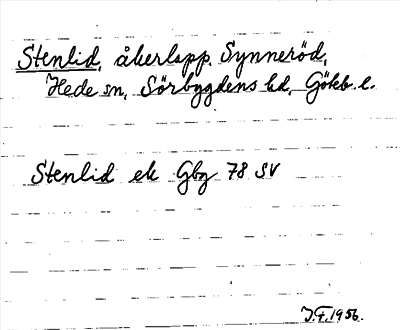 Stenlid, åkerlapp, Synneröd,
Hede sn, Sörbygdens hd, Göteb. l.
Stenlid ek Gbg 78 SV
J.F. 1956.